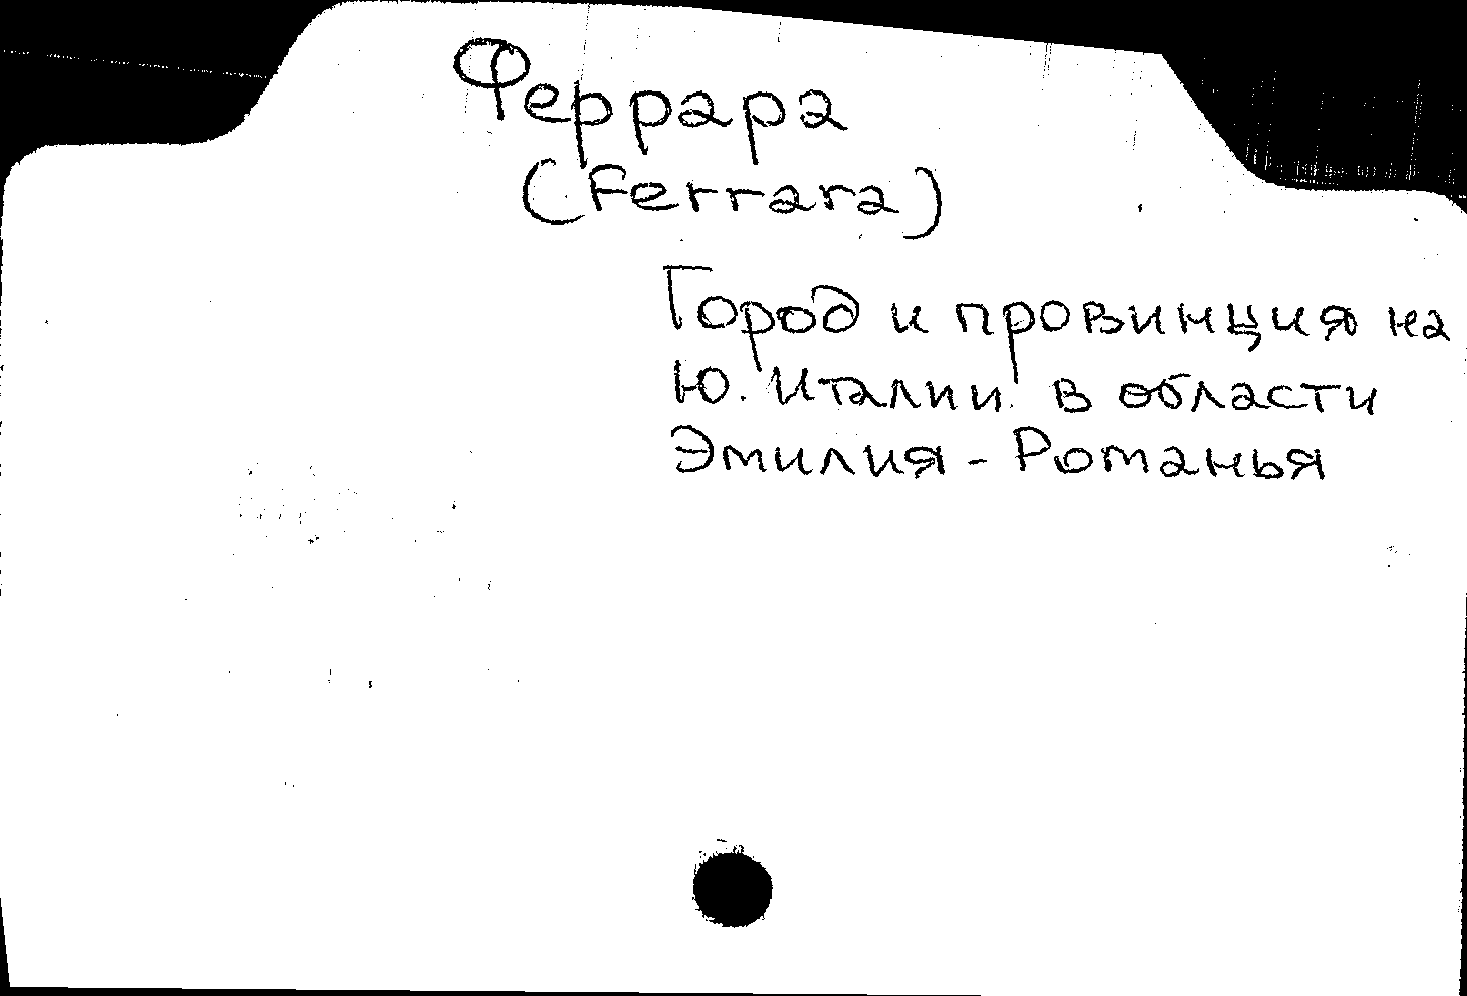 Феррара
(Ferrara)
Город и провинция на
Ю. Италии в области
Эмилия - Романья